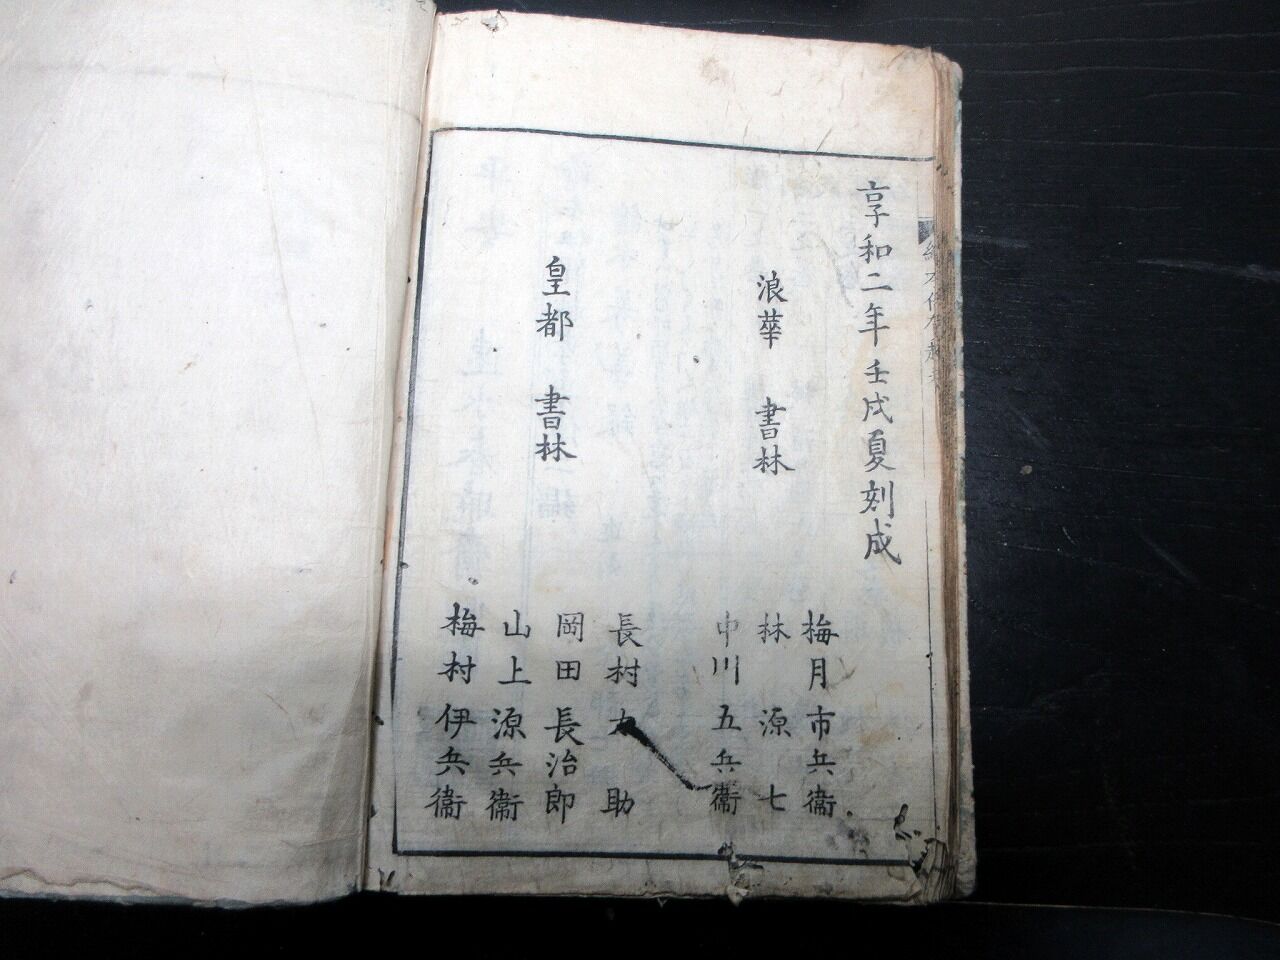 享和二年壬戌夏刻成
浪華 書林
梅月市兵衞
林 源 七
中川五兵衞
皇都 書林
長村 助
岡田長治郎
山上源兵衞
梅村伊兵衞